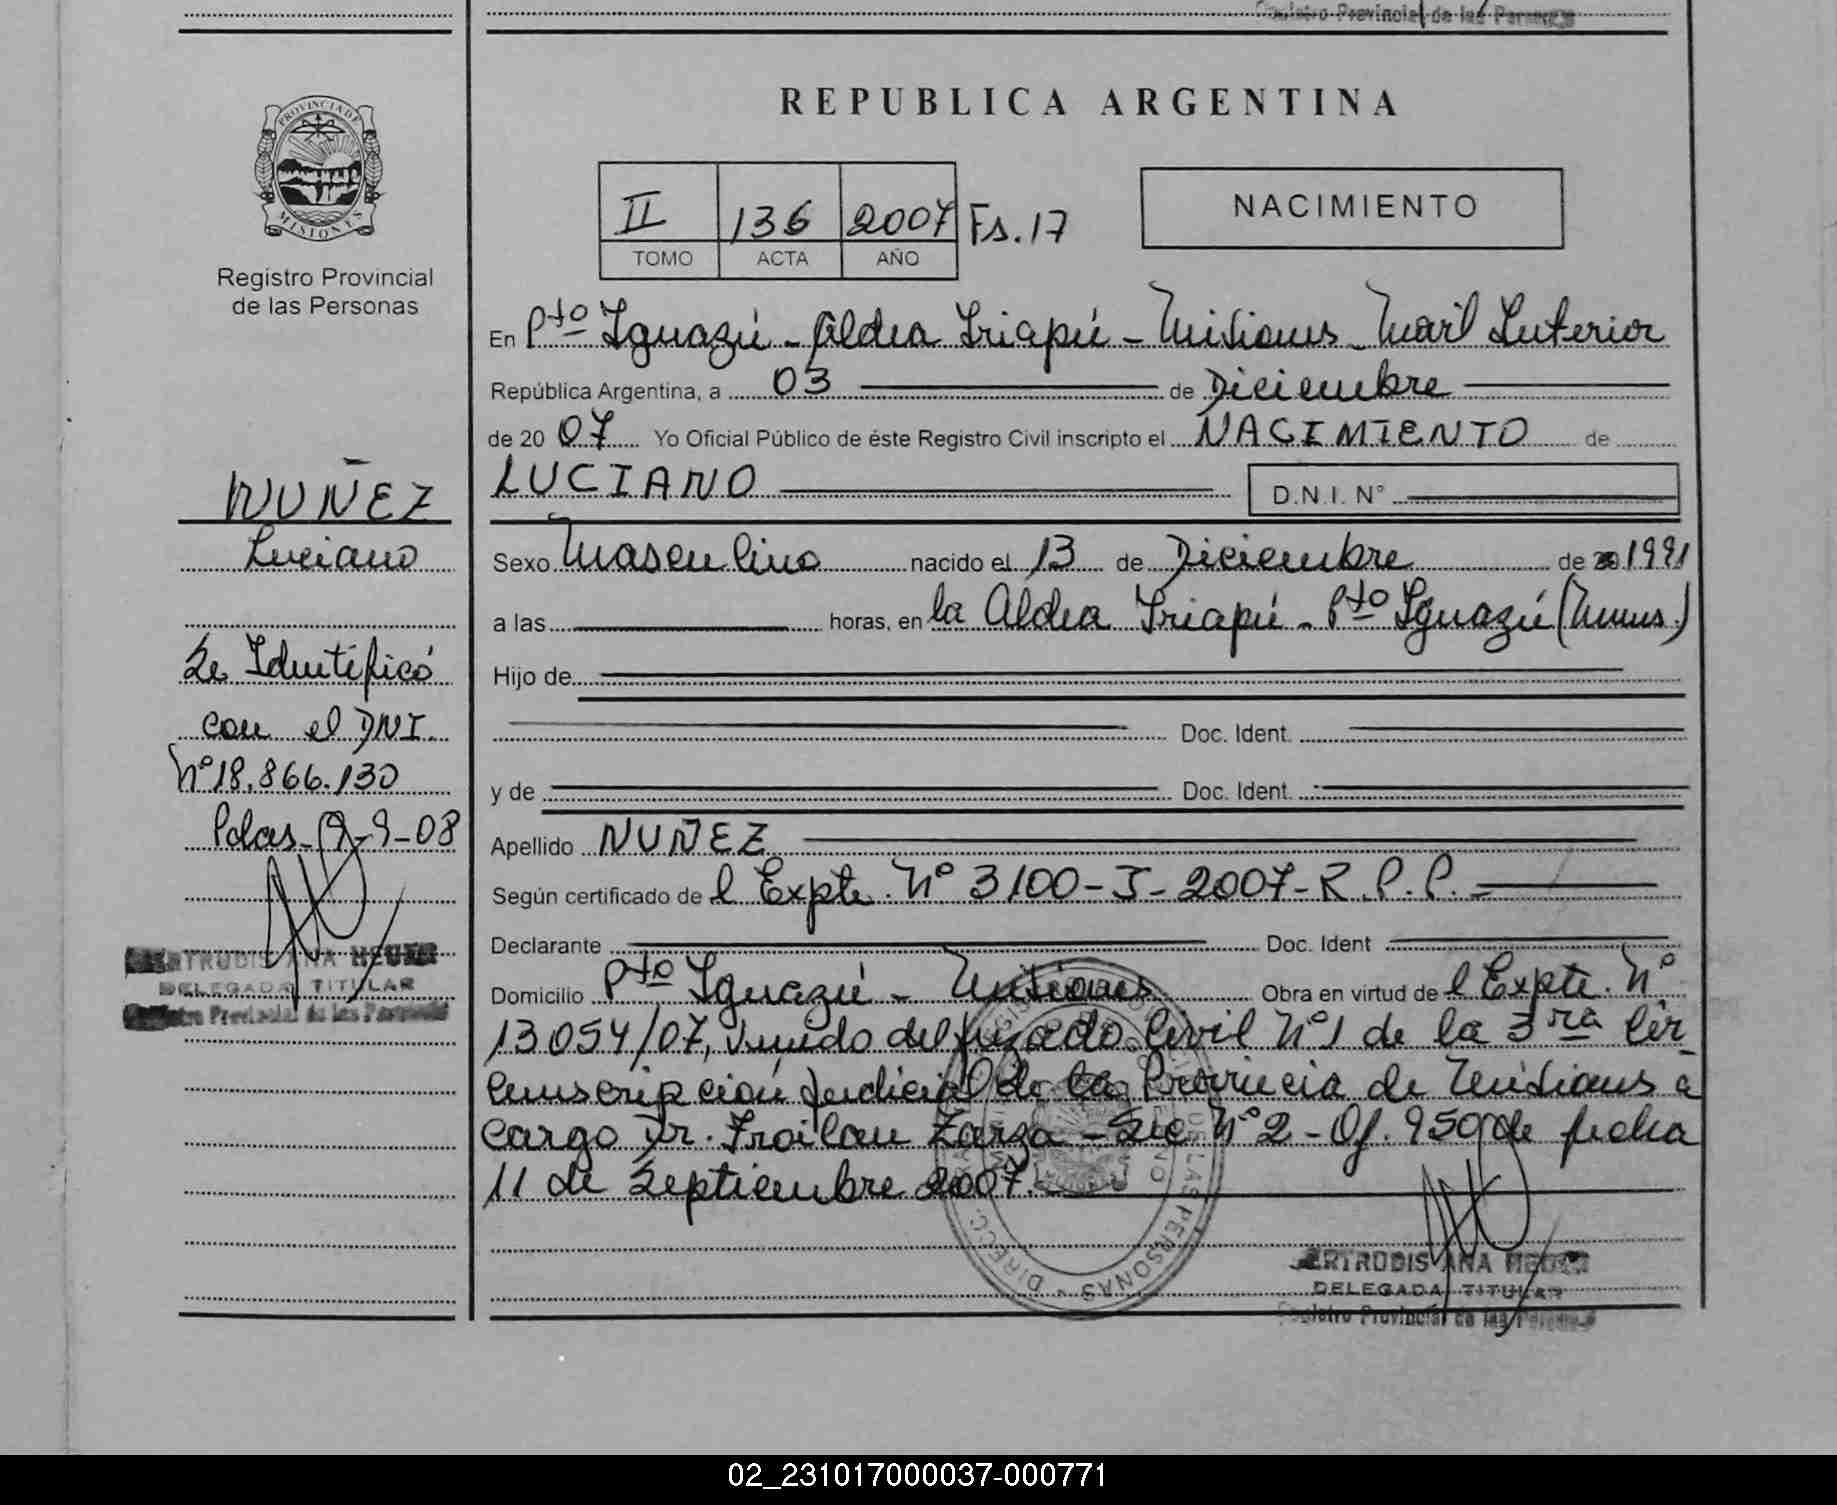 Registro Provincial de las Personas
REPUBLICA ARGENTINA
PROVINCIA DE
MISIONES
Registro Provincial
de las Personas
II 136 2007 Fs. 17
TOMO ACTA AÑO
NACIMIENTO
En Pto Iguazú - Aldea Iriapú - Misiones - Movil Interior
República Argentina, a 03 de Diciembre
de 20 07 Yo Oficial Público de éste Registro Civil inscripto el NACIMIENTO de
LUCIANO D.N.I. N°
Sexo Masculino nacido el 13 de Diciembre de 1991
a las horas, en la Aldea Iriapú - Pto Iguazú (Mnes.)
Hijo de
Doc. Ident.
y de Doc. Ident.
Apellido NUÑEZ
Según certificado de l Expte. N° 3100-I-2007-R.P.P.
Declarante Doc. Ident
Domicilio Pto Iguazú - Misiones Obra en virtud de l Expte. N°
13054/07, Juzgado Civil N°1 de la 3ra Cir
cunscripción Judicial de la Provincia de Misiones a
cargo Dr. Froilan Zarza - Sec N°2 - Of. 950 de fecha
11 de Septiembre 2007.
NUÑEZ
Luciano
Se Identificó
con el DNI.
N° 18.866.130
Pdas 9-9-08
GERTRUDIS ANA
DELEGADA TITULAR
Registro Provincial de las Personas
GERTRUDIS ANA
DELEGADA TITULAR
Registro Provincial de las Personas
02_231017000037-000771